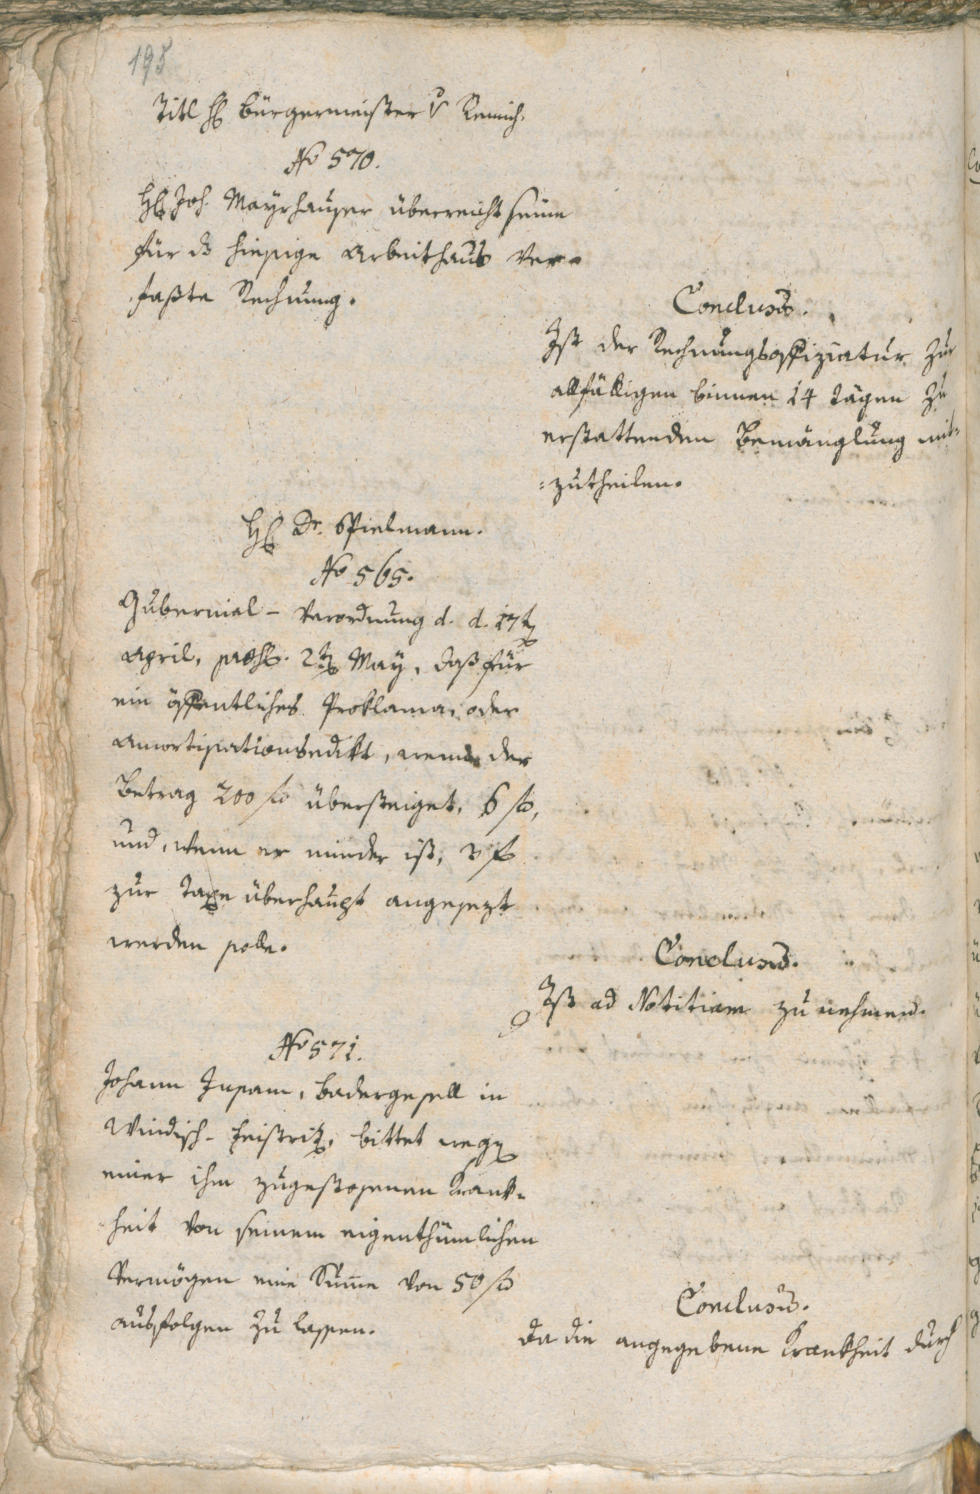 198
Titl H Bürgermeister v Remich.
No 570.
H Joh. Mayrhauser überreicht seine
für ds hiesige Arbeitshaus Ver=
faßte Rechnung.
Conclusum.
Ist der Rechnungsoffiziatur zur
allfälligen binnen 14 Tägen zu
erstattenden Bemänglung mit=
=zutheilen.
H Dr. Spielmann.
No 565.
Gubernial - Verordnung d. d. 17t
April, 2t May, daß für
ein öffentliches Proklama, oder
Amortisationsedikt, wenn der
Betrag 200 f übersteiget, 6 f,
und, wenn er minder ist, 3 f
zur Taxe überhaupt angesezt
werden solle.
Conclusum.
Ist ad Notitiam zu nehmen.
No 571.
Johann, Badergesell in
Windisch-Feistritz, bittet wegen
einer ihm zugestossenen Krank=
heit von seinem eigenthümlichen
Vermögen eine Summe von 50 f
ausfolgen zu lassen.
Conclusum.
Da die angegebene Krankheit durch